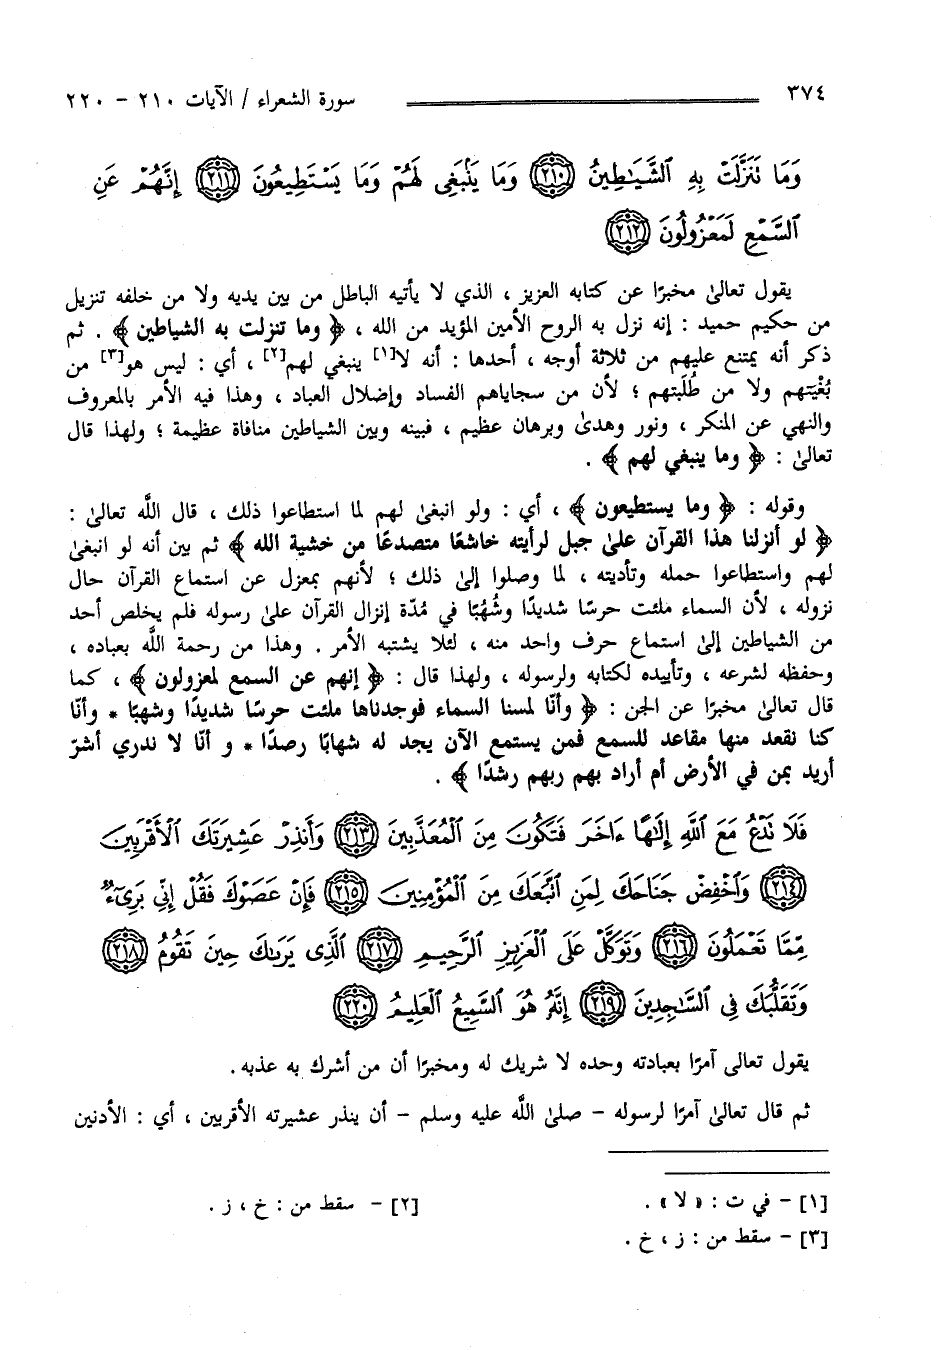 ٣٧٤ سورة الشعراء / الآيات ٢١٠ - ٢٢٠
وَمَا تَنَزَّلَتْ بِهِ الشَّيَاطِينُ ﴿٢١٠﴾ وَمَا يَنْبَغِي لَهُمْ وَمَا يَسْتَطِيعُونَ ﴿٢١١﴾ إِنَّهُمْ عَنِ
السَّمْعِ لَمَعْزُولُونَ ﴿٢١٢﴾
يقول تعالىٰ مخبرًا عن كتابه العزيز ، الذي لا يأتيه الباطل من بين يديه ولا من خلفه تنزيل
من حكيم حميد : إنه نزل به الروح الأمين المؤيد من الله ، ﴿ وما تنزلت به الشياطين ﴾ . ثم
ذكر أنه يمتنع عليهم من ثلاثة أوجه ، أحدها : أنه لا[١] ينبغي لهم[٢] ، أي : ليس هو[٣] من
بُغْيَتهم ولا من طُلَبتهم ؛ لأن من سجاياهم الفساد وإضلال العباد ، وهذا فيه الأمر بالمعروف
والنهي عن المنكر ، ونور وهدىٰ وبرهان عظيم ، فبينه وبين الشياطين منافاة عظيمة ؛ ولهذا قال
تعالىٰ : ﴿ وما ينبغي لهم ﴾ .
وقوله : ﴿ وما يستطيعون ﴾ ، أي : ولو انبغىٰ لهم لما استطاعوا ذلك ، قال اللَّه تعالىٰ :
﴿ لو أنزلنا هذا القرآن علىٰ جبل لرأيته خاشعًا متصدعًا من خشية الله ﴾ ثم بين أنه لو انبغىٰ
لهم واستطاعوا حمله وتأديته ، لما وصلوا إلىٰ ذلك ؛ لأنهم بمعزل عن استماع القرآن حال
نزوله ، لأن السماء ملئت حرسًا شديدًا وشُهُبًا في مُدّة إنزال القرآن علىٰ رسوله فلم يخلص أحد
من الشياطين إلىٰ استماع حرف واحد منه ، لئلا يشتبه الأمر . وهذا من رحمة اللَّه بعباده ،
وحفظه لشرعه ، وتأييده لكتابه ولرسوله ، ولهذا قال : ﴿ إنهم عن السمع لمعزولون ﴾ ، كما
قال تعالىٰ مخبرًا عن الجن : ﴿ وأنّا لمسنا السماء فوجدناها ملئت حرسًا شديدًا وشهبًا * وأنّا
كنا نقعد منها مقاعد للسمع فمن يستمع الآن يجد له شهابًا رصدًا * و أنّا لا ندري أشرّ
أريد بمن في الأرض أم أراد بهم ربهم رشدًا ﴾ .
فَلَا تَدْعُ مَعَ اللَّهِ إِلَٰهًا ءَاخَرَ فَتَكُونَ مِنَ الْمُعَذَّبِينَ ﴿٢١٣﴾ وَأَنذِرْ عَشِيرَتَكَ الْأَقْرَبِينَ
﴿٢١٤﴾ وَاخْفِضْ جَنَاحَكَ لِمَنِ اتَّبَعَكَ مِنَ الْمُؤْمِنِينَ ﴿٢١٥﴾ فَإِنْ عَصَوْكَ فَقُلْ إِنِّي بَرِيٓءٌ
مِّمَّا تَعْمَلُونَ ﴿٢١٦﴾ وَتَوَكَّلْ عَلَى الْعَزِيزِ الرَّحِيمِ ﴿٢١٧﴾ الَّذِي يَرَىٰكَ حِينَ تَقُومُ ﴿٢١٨﴾
وَتَقَلُّبَكَ فِي السَّاجِدِينَ ﴿٢١٩﴾ إِنَّهُ هُوَ السَّمِيعُ الْعَلِيمُ ﴿٢٢٠﴾
يقول تعالى آمرًا بعبادته وحده لا شريك له ومخبرًا أن من أشرك به عذبه .
ثم قال تعالىٰ آمرًا لرسوله - صلىٰ اللَّه عليه وسلم - أن ينذر عشيرته الأقربين ، أي : الأدنين
[١] - في ت : « لا » . [٢] - سقط من : خ ، ز .
[٣] - سقط من : ز ، خ .